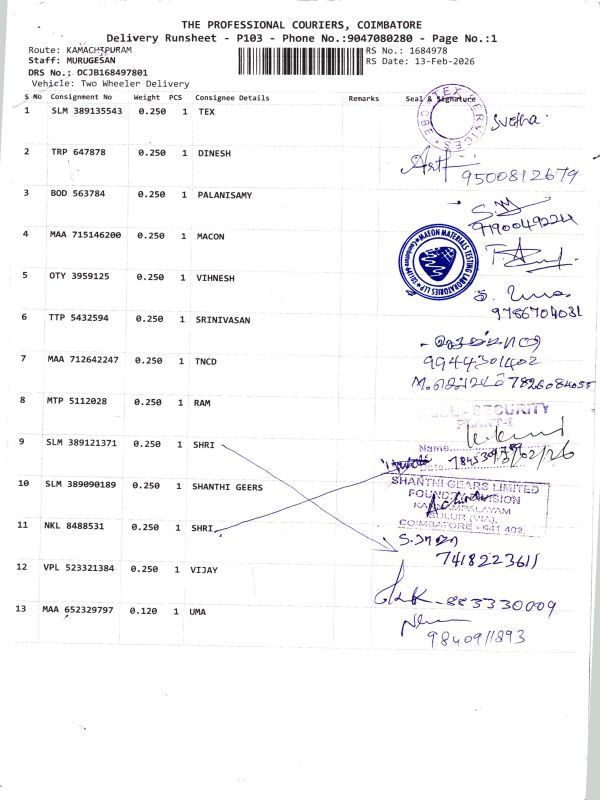 THE PROFESSIONAL COURIERS, COIMBATORE
Delivery Runsheet - P103 - Phone No.:9047080280 - Page No.:1
Route: KAMACHIPURAM
RS No.: 1684978
Staff: MURUGESAN
RS Date: 13-Feb-2026
DRS No.: DCJB168497801
Vehicle: Two Wheeler Delivery
S No Consignment No Weight PCS Consignee Details Remarks Seal & Signature
1 SLM 389135543 0.250 1 TEX
TEX SERVICES CBE
2 TRP 647878 0.250 1 DINESH
9500812679
3 BOD 563784 0.250 1 PALANISAMY
4 MAA 715146200 0.250 1 MACON
5 OTY 3959125 0.250 1 VIHNESH
9786704031
6 TTP 5432594 0.250 1 SRINIVASAN
9944301402
7 MAA 712642247 0.250 1 TNCD
7826084055
8 MTP 5112028 0.250 1 RAM
SECURITY
Name
9 SLM 389121371 0.250 1 SHRI
Date
10 SLM 389090189 0.250 1 SHANTHI GEERS
SHANTHI GEARS LIMITED
FOUNDRY DIVISION
11 NKL 8488531 0.250 1 SHRI
COIMBATORE - 641 402
7418223611
12 VPL 523321384 0.250 1 VIJAY
883330009
13 MAA 652329797 0.120 1 UMA
9840911893